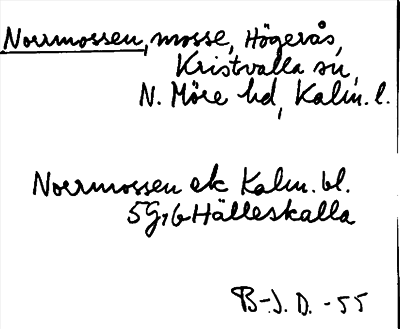 Norrmossen, mosse, Högerås,
Kristvalla sn,
N. Möre hd, Kalm. l.
Norrmossen ek Kalm. bl.
5G, 6 Hälleskalla
B-J. D. -55